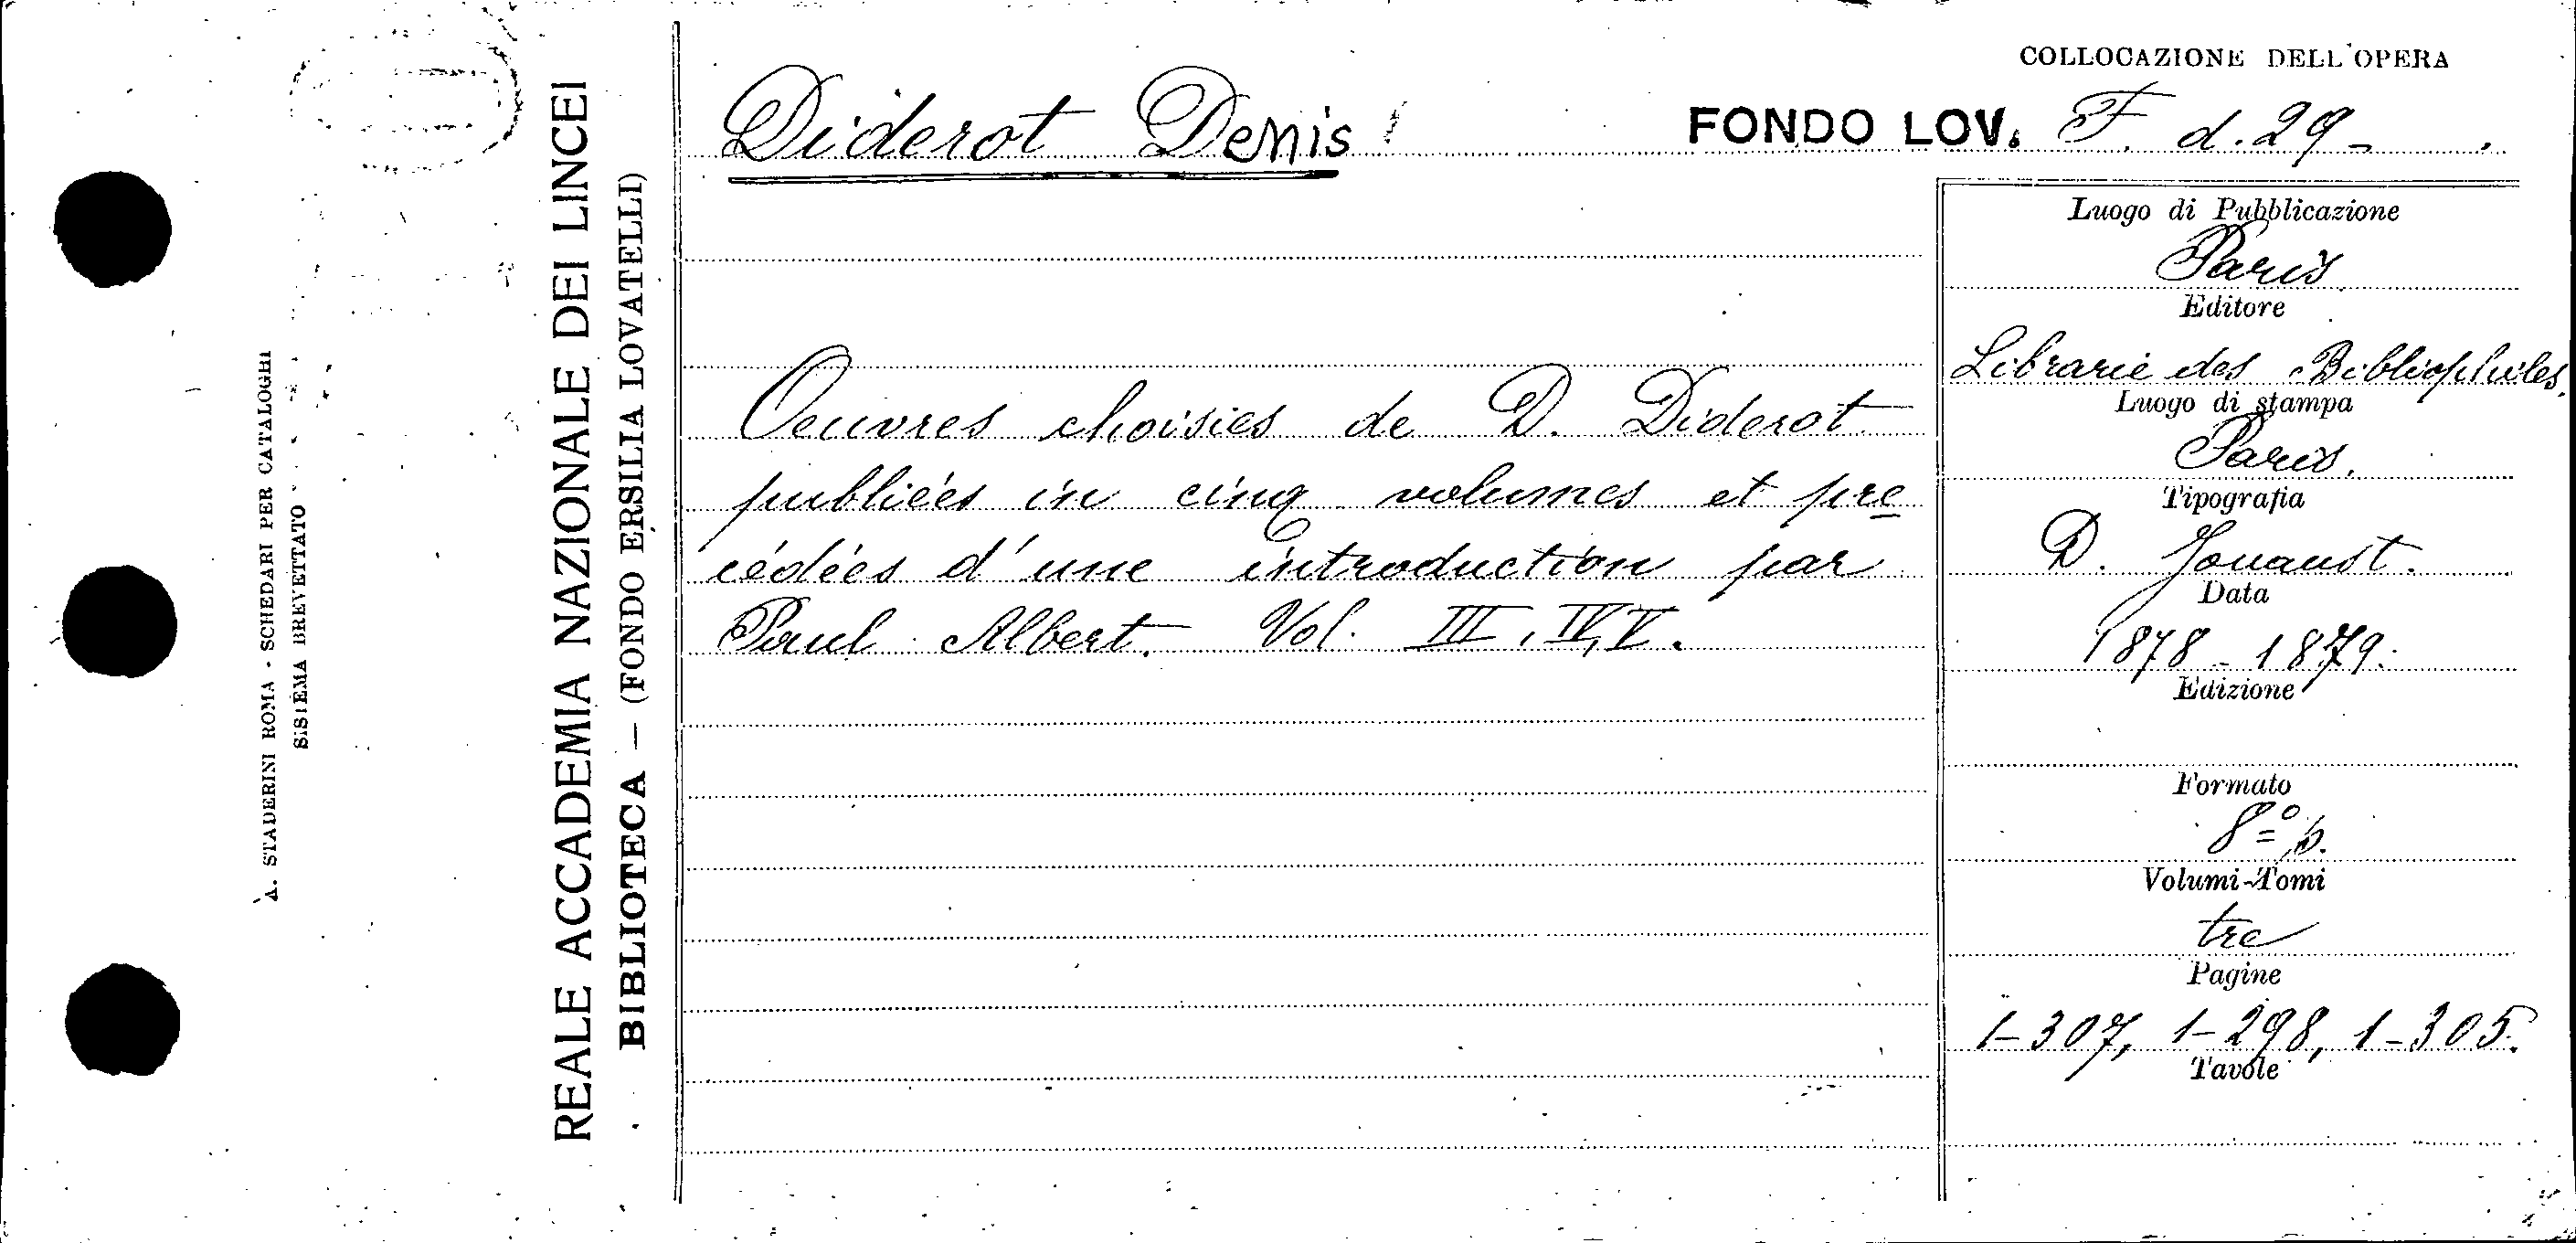 COLLOCAZIONE DELL'OPERA
Diderot Denis
FONDO LOV. F. d. 29
Oeuvres choisies de D. Diderot
publiées in cinq volumes et pre
cédées d'une introduction par
Paul Albert. Vol. III, IV, V.
Luogo di Pubblicazione
Paris
Editore
Librarie des Bibliophiles.
Luogo di stampa
Paris.
Tipografia
D. Jouaust.
Data
1878 - 1879.
Edizione
Formato
8º p.
Volumi-Tomi
tre
Pagine
1-307, 1-298, 1-305.
Tavole
REALE ACCADEMIA NAZIONALE DEI LINCEI
BIBLIOTECA — (FONDO ERSILIA LOVATELLI)
A. STADERINI ROMA - SCHEDARI PER CATALOGHI
SISTEMA BREVETTATO